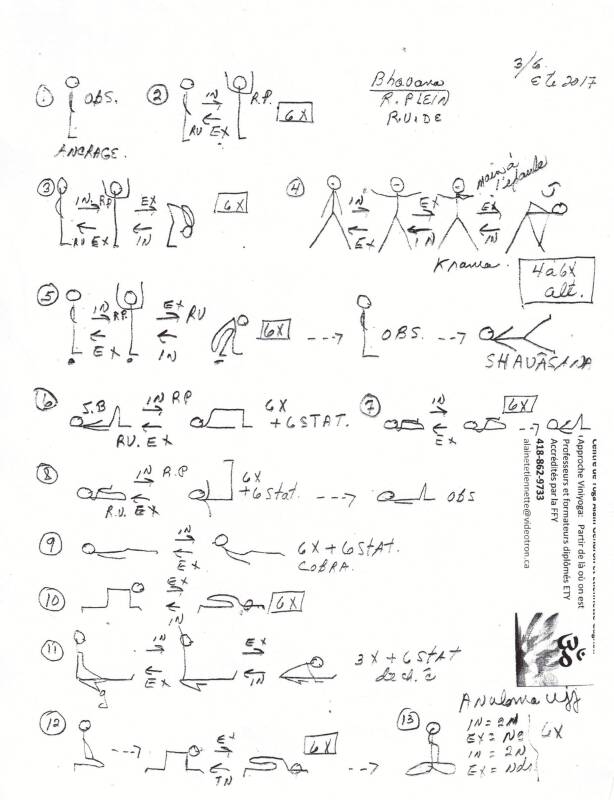 3/6
Ete 2017
Bhavana
R. PLEIN
R. VIDE
① OBS.
ANCRAGE.
② IN R.P.
RV EX
6X
③ IN R.P. EX
RV EX IN
6X
④ IN EX main à l'épaule EX
EX IN IN
Krama.
4 à 6X
alt.
⑤ IN R.P. EX RV
EX IN
6X
OBS.
SHAVÂSANA
⑥ S.B IN RP
RV. EX
6X
+ 6 STAT.
⑦ IN
EX
6X
⑧ IN R.P
R.V. EX
6X
+ 6 Stat.
OBS
⑨ IN
EX
6X + 6 STAT.
COBRA.
⑩ EX
IN
6X
⑪ IN IN EX
EX IN
3X + 6 STAT
g
⑫ EX
IN
6X
⑬ Anuloma Ujj
IN = 2N
EX = Ng
IN = 2N
EX = Ndr
6X
Approche Viniyoga: Partir de là où on est
Professeurs et formateurs diplômés ETY
Accrédités par la FFY
418-862-9733
alainetetiennette@videotron.ca
ॐ